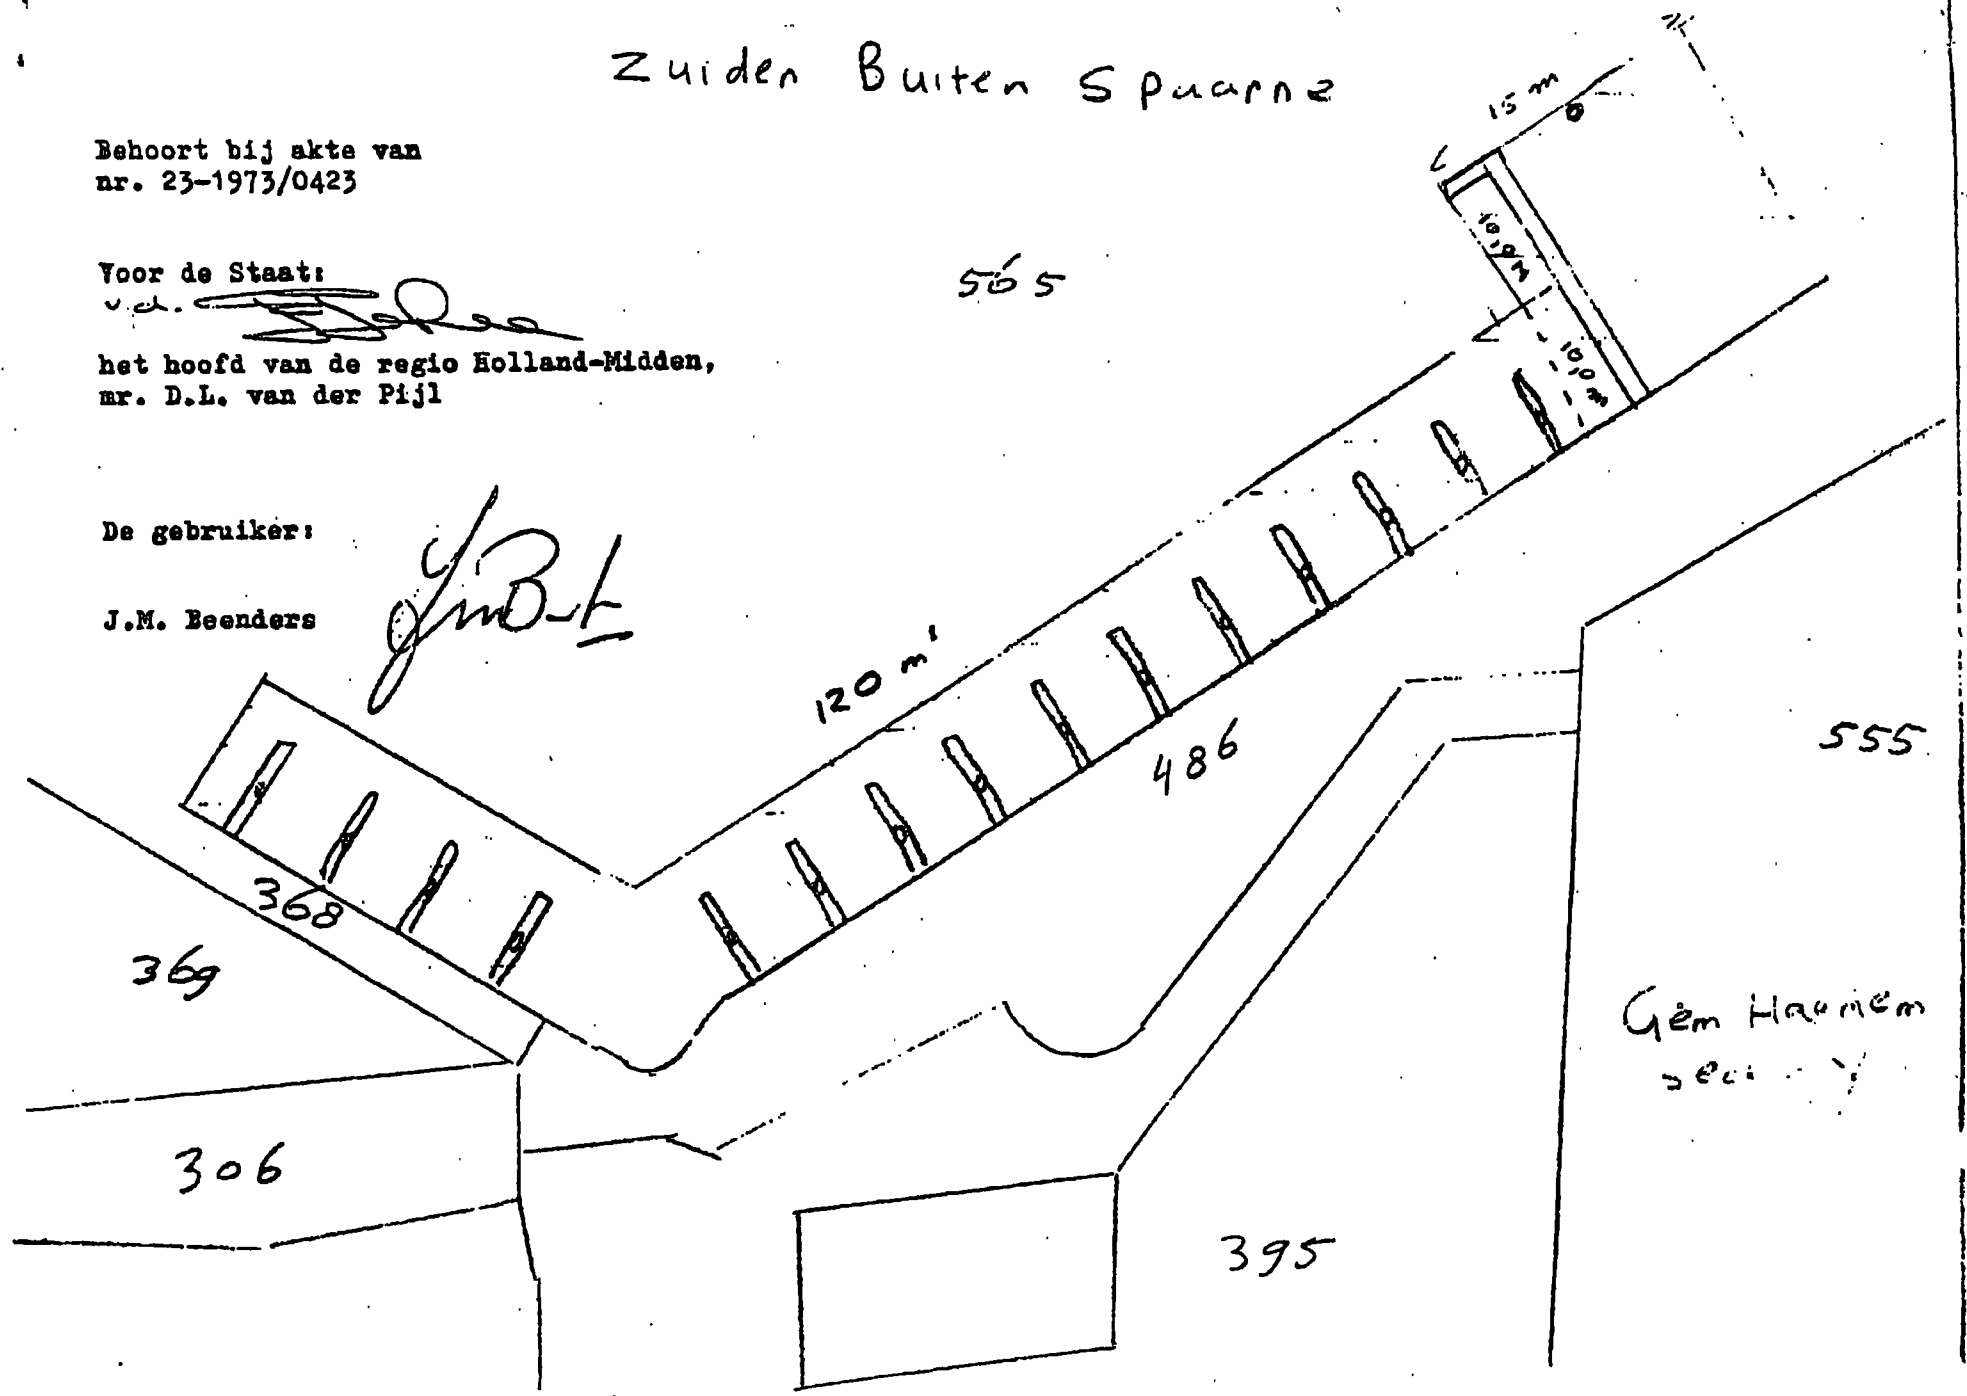 Zuiden Buiten Spaarne
Behoort bij akte van
nr. 23-1973/0423
Voor de Staat:
v.d.
het hoofd van de regio Holland-Midden,
mr. D.L. van der Pijl
De gebruiker:
J.M. Beenders
15 m
10,0 M
10,0 m
565
120 m'
486
555
368
369
306
395
Gem Haarlem